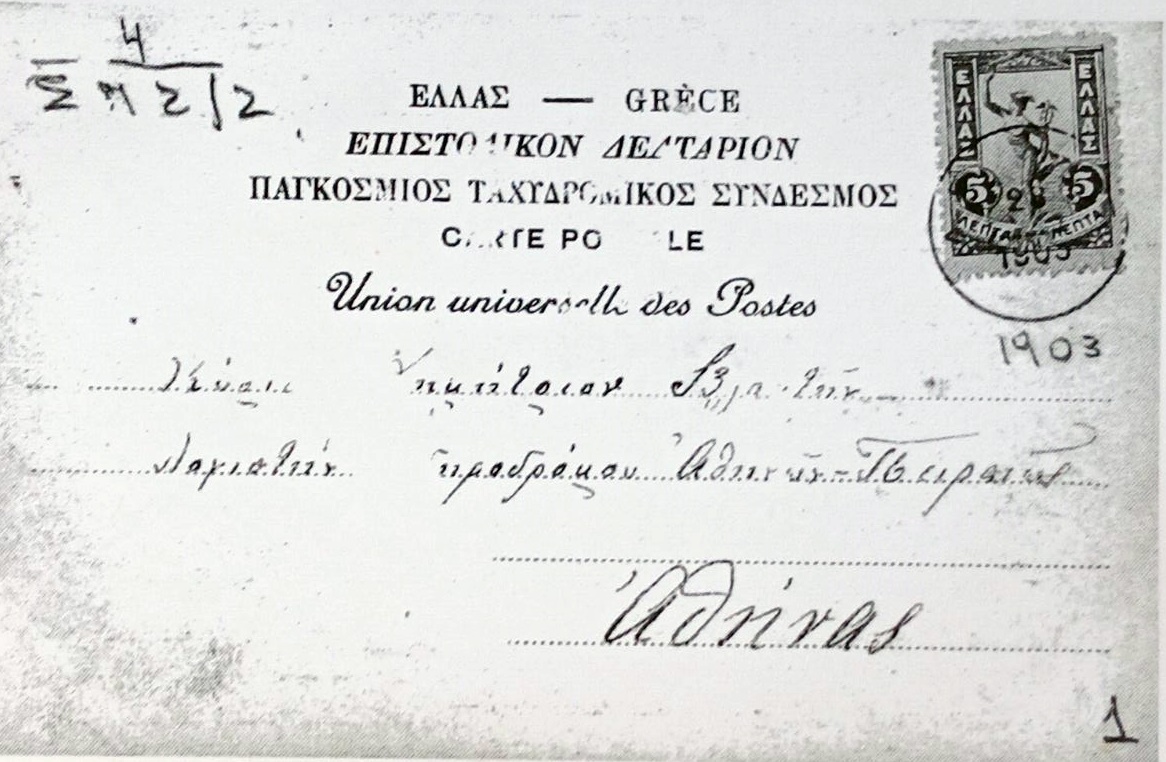 4
ΕΛΛΑΣ — GRÈCE
ΕΠΙΣΤΟΛΙΚΟΝ ΔΕΛΤΑΡΙΟΝ
ΠΑΓΚΟΣΜΙΟΣ ΤΑΧΥΔΡΟΜΙΚΟΣ ΣΥΝΔΕΣΜΟΣ
CARTE POSTALE
Union universelle des Postes
ΕΛΛΑΣ ΕΛΛΑΣ
5 5
ΛΕΠΤΑ ΛΕΠΤΑ
1903
1903
Δημήτριον
προδρόμου Ἀθηνῶν-Πειραιῶς
Ἀθήνας
1